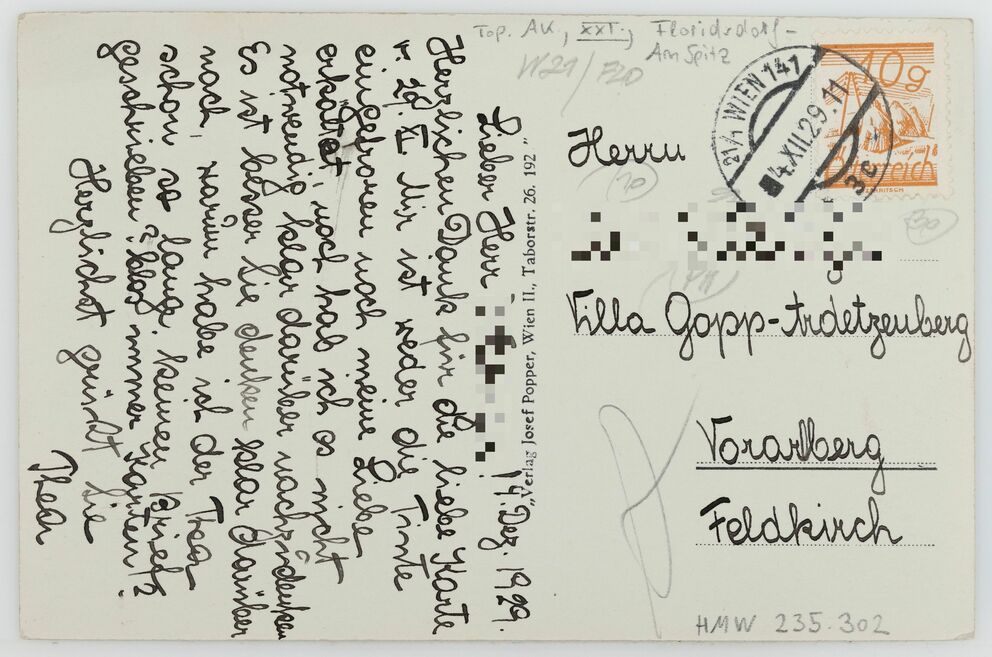 Top. AK, XXI., Floridsdorf -
Am Spitz
W21 / FLD
21/1 WIEN 141
4.XII.29.11
3c
10g
Österreich
Herrn
Villa Gopp-Ardetzenberg
Vorarlberg
Feldkirch
HMW 235.302
„Verlag Josef Popper, Wien II., Taborstr. 26. 192"
Lieber Herr
! 4. Dez. 1929.
Herzlichen Dank für die liebe Karte
v. 29. XI. Mir ist weder die Tinte
eingefroren noch meine Liebe
erkaltet, noch hab ich es nicht
notwendig klar darüber nachzudenken
Es ist besser Sie denken klar darüber
nach, warum habe ich der Thea
schon so lange keinen Brief
geschrieben? blos immer Karten?
Herzlichst grüßt Sie
Thea